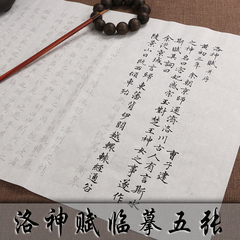 洛神賦并序
曹子建
黄初三年余朝京師還濟洛川古人有言斯水
之神名曰宓妃感宋玉對楚王神女之事遂作
斯賦其詞曰
余從京域言歸東藩背伊闕越轘轅經通谷
陵景山日既西傾車殆
洛神赋临摹五张